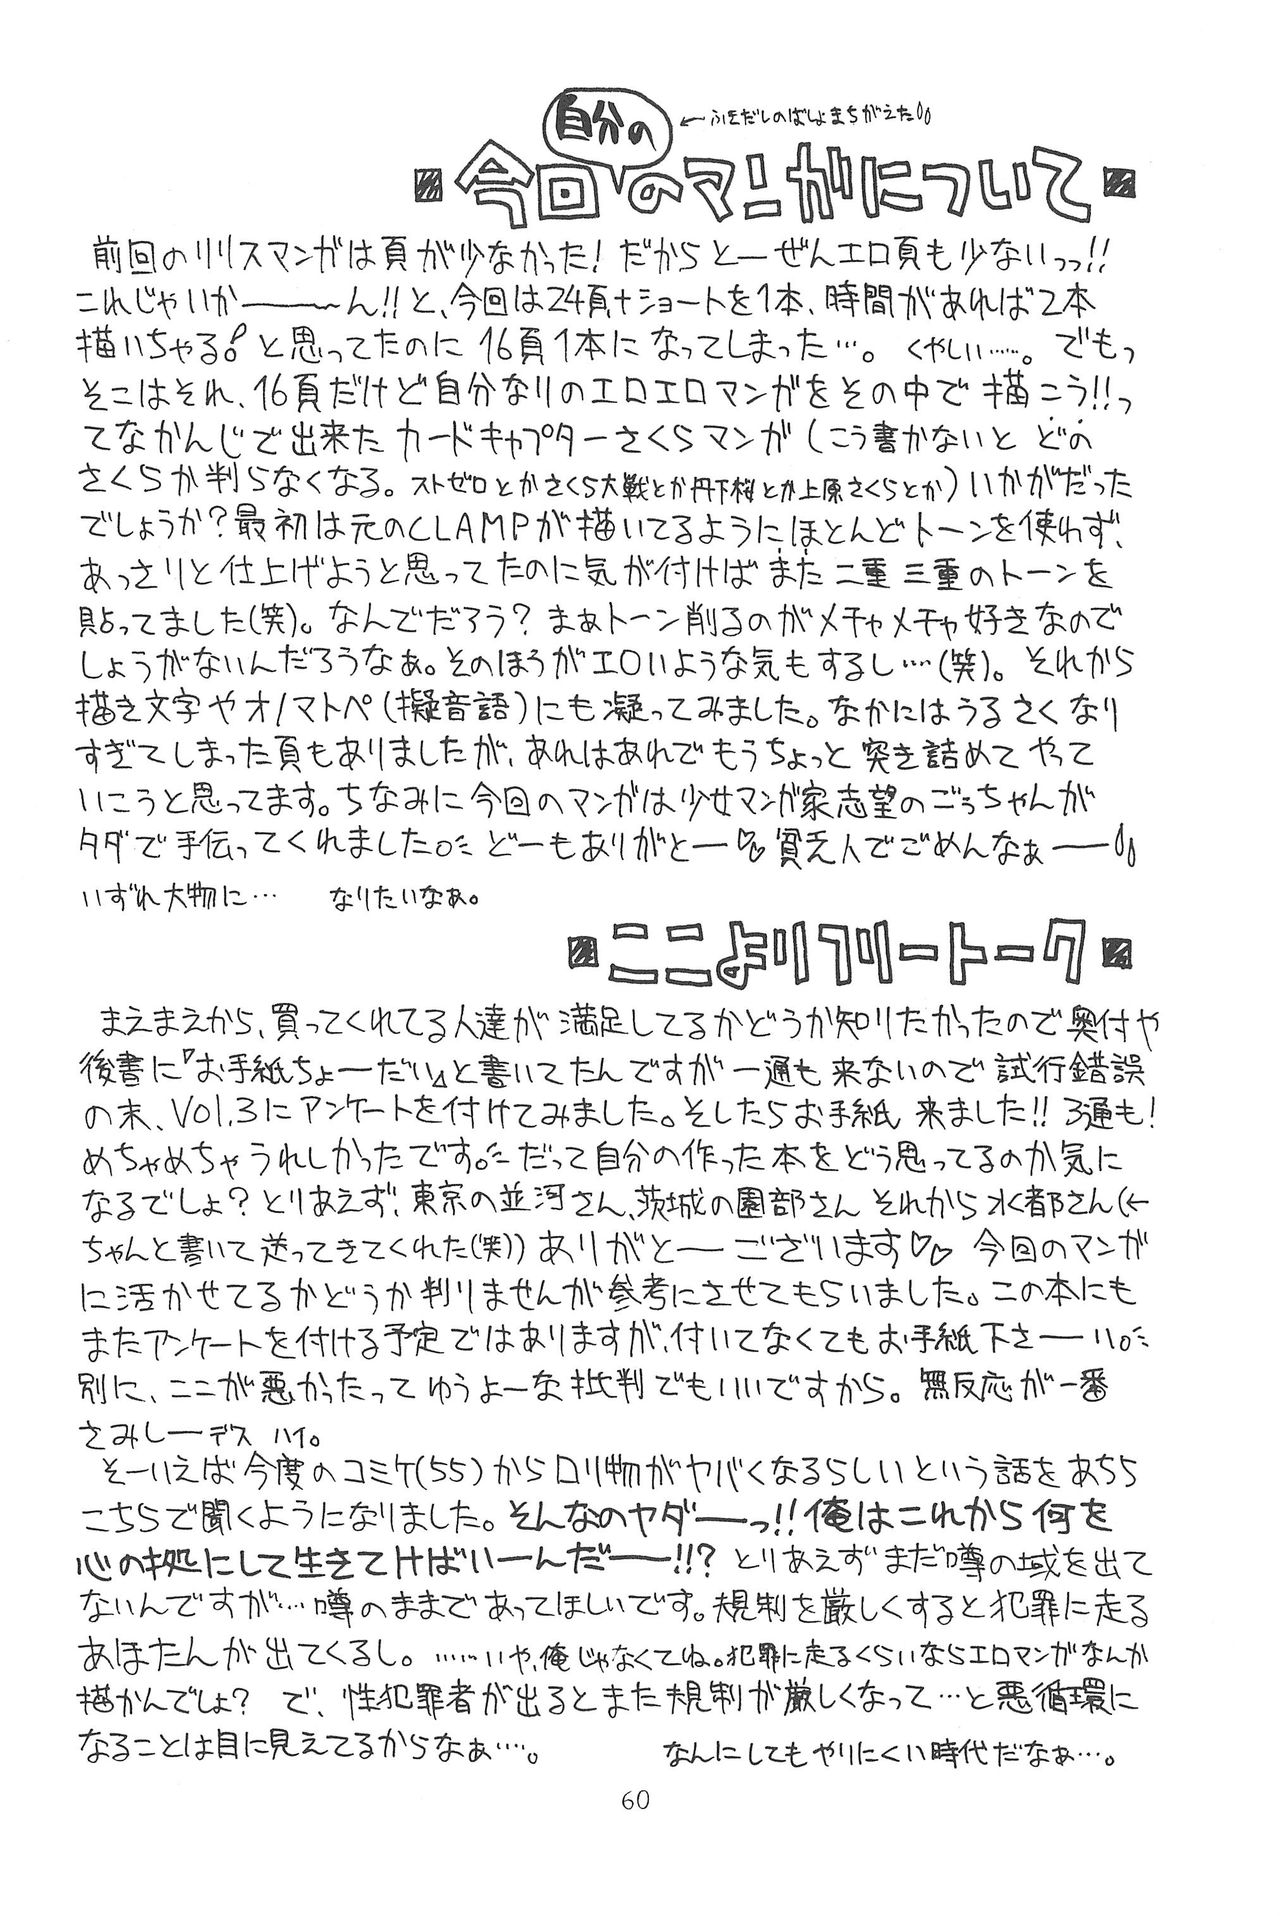 自分の ←ふきだしのばしょまちがえた
今回のマンガについて
前回のリリスマンガは頁が少なかった!だからとーぜんエロ頁も少ないっっ!!
これじゃいか―――〜ん!!と、今回は24頁+ショートを1本、時間があれば2本
描いちゃる!と思ってたのに16頁1本になってしまった…。くやしい……。でもっ
そこはそれ、16頁だけど自分なりのエロエロマンガをその中で描こう!!っ
てなかんじで出来たカードキャプターさくらマンガ(こう書かないとどの
さくらか判らなくなる。ストゼロとかさくら大戦とか丹下桜とか上原さくらとか)いかがだった
でしょうか?最初は元のCLAMPが描いてるようにほとんどトーンを使わず、
あっさりと仕上げようと思ってたのに気が付けばまた二重三重のトーンを
貼ってました(笑)。なんでだろう?まぁトーン削るのがメチャメチャ好きなので
しょうがないんだろうなぁ。そのほうがエロいような気もするし…(笑)。それから
描き文字やオノマトペ(擬音語)にも凝ってみました。なかにはうるさくなり
すぎてしまった頁もありましたが、あれはあれでもうちょっと突き詰めてやって
いこうと思ってます。ちなみに今回のマンガは少女マンガ家志望のごぅちゃんが
タダで手伝ってくれました。どーもありがとー♡♡貧乏人でごめんなぁ――
いずれ大物に… なりたいなぁ。
ここよりフリートーク
まえまえから、買ってくれてる人達が満足してるかどうか知りたかったので奥付や
後書に『お手紙ちょーだい』と書いてたんですが一通も来ないので試行錯誤
の末、Vol.3にアンケートを付けてみました。そしたらお手紙来ました!!3通も!
めちゃめちゃうれしかったです。だって自分の作った本をどう思ってるのか気に
なるでしょ?とりあえず、東京の並河さん、茨城の園部さんそれから水都さん(←
ちゃんと書いて送ってきてくれた(笑))ありがとーございます♡♡今回のマンガ
に活かせてるかどうか判りませんが参考にさせてもらいました。この本にも
またアンケートを付ける予定ではありますが、付いてなくてもお手紙下さーい。
別に、ここが悪かったってゆうよーな批判でもいいですから。無反応が一番
さみしーデス ハイ。
そーいえば今度のコミケ(55)からロリ物がヤバくなるらしいという話をあちら
こちらで聞くようになりました。そんなのヤダーっ!!俺はこれから何を
心の拠処にして生きてけばいーんだー!!?とりあえずまだ噂の域を出て
ないんですが…噂のままであってほしいです。規制を厳しくすると犯罪に走る
あほたんが出てくるし。……いや、俺じゃなくてね。犯罪に走るくらいならエロマンガなんか
描かんでしょ?で、性犯罪者が出るとまた規制が厳しくなって…と悪循環に
なることは目に見えてるからなぁ…。 なんにしてもやりにくい時代だなぁ…。
60